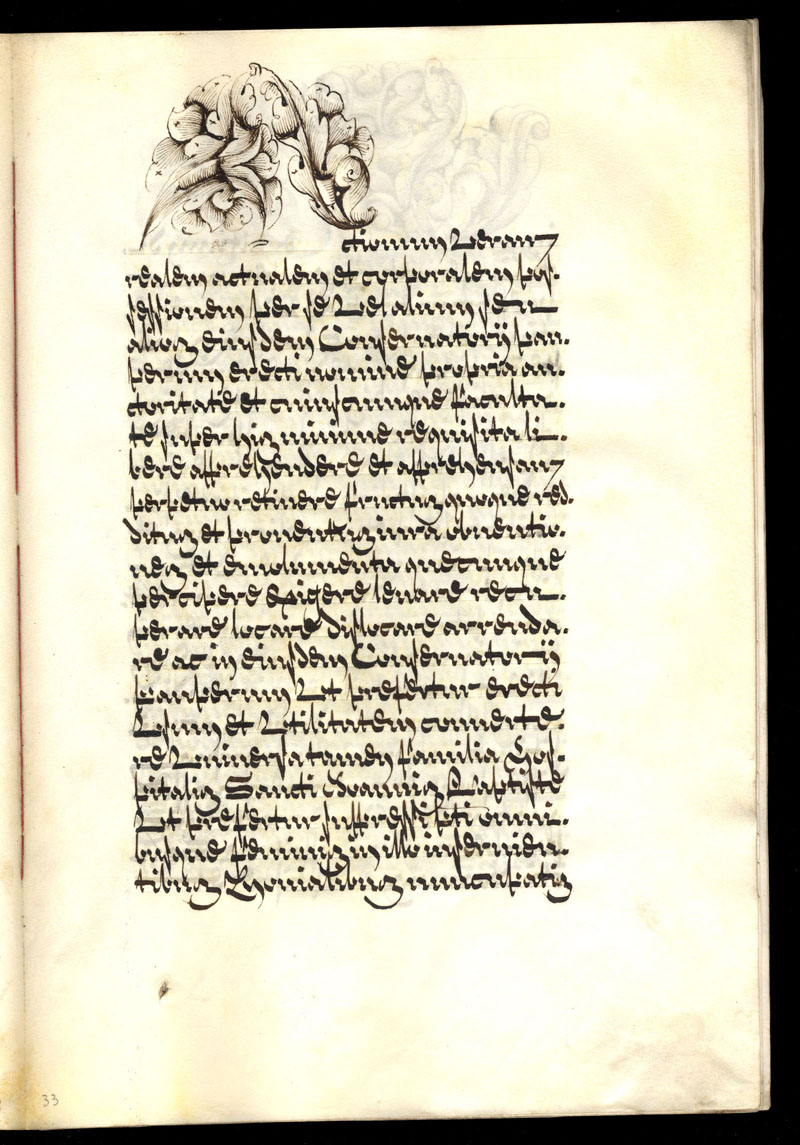 ctionum veram
realem actualem et corporalem pos-
sessionem per se vel alium seu
alios eiusdem Conservatorij pau-
perum erecti nomine propria au-
ctoritate et cuiuscumque faculta-
te super his minime requisita li-
bere apprehendere et apprehensam
perpetuo retinere fructus quoque red-
ditus et proventus iura obventio-
nes et emolumenta quecumque
percipere exigere levare recu-
perare locare dislocare arrenda-
re ac in eiusdem Conservatorij
pauperum ut prefertur erecti
usum et utilitatem converte-
re universa tamen familia Hos-
pitalis Sancti Ioannis Baptiste
ut prefertur suppressi pti omni-
busque feminis in illo inservien-
tibus nuncupatis
33